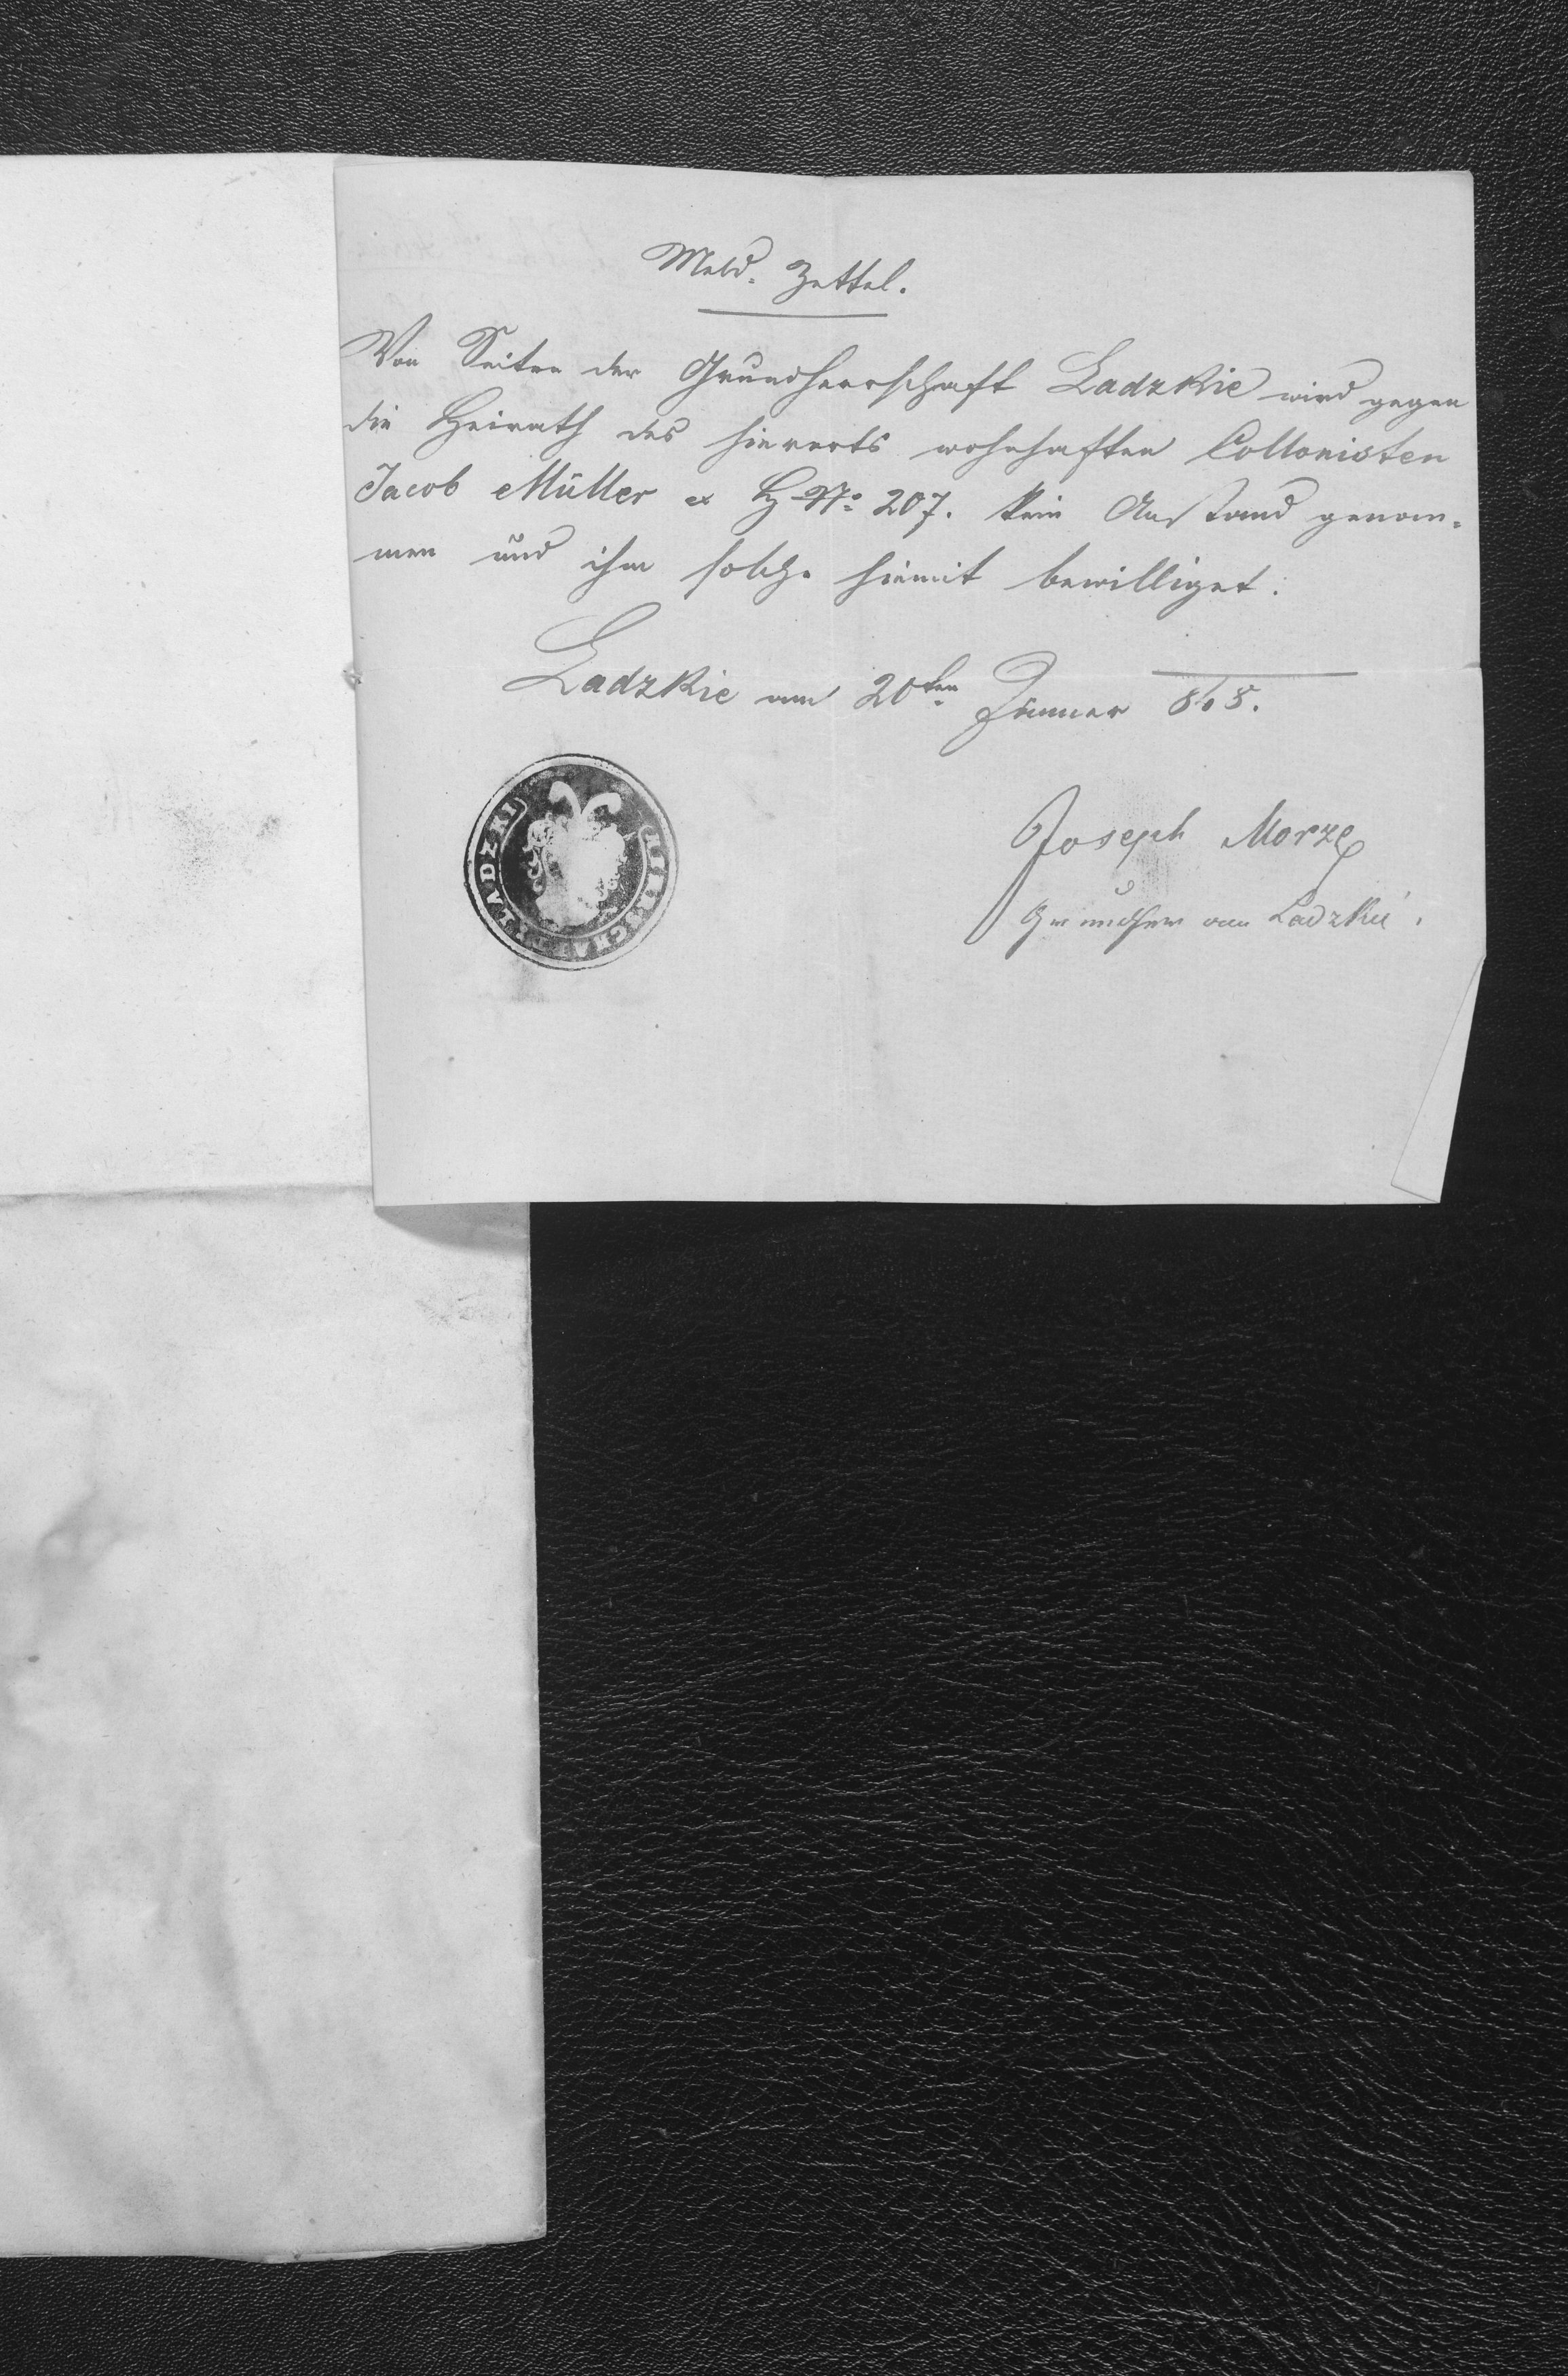 Meld-Zettel.
Von Seiten der Grundherrschaft Ladzkie wird gegen
die Heirath des hierorts wohnhaften Collonisten
Jacob Müller ex H-No: 207. kein Anstand genom-
men und ihm solche hiemit bewilliget.
Ladzkie am 20ten Jänner 865.
Joseph Morze
Grundherr von Ladzkie.
LADZKI